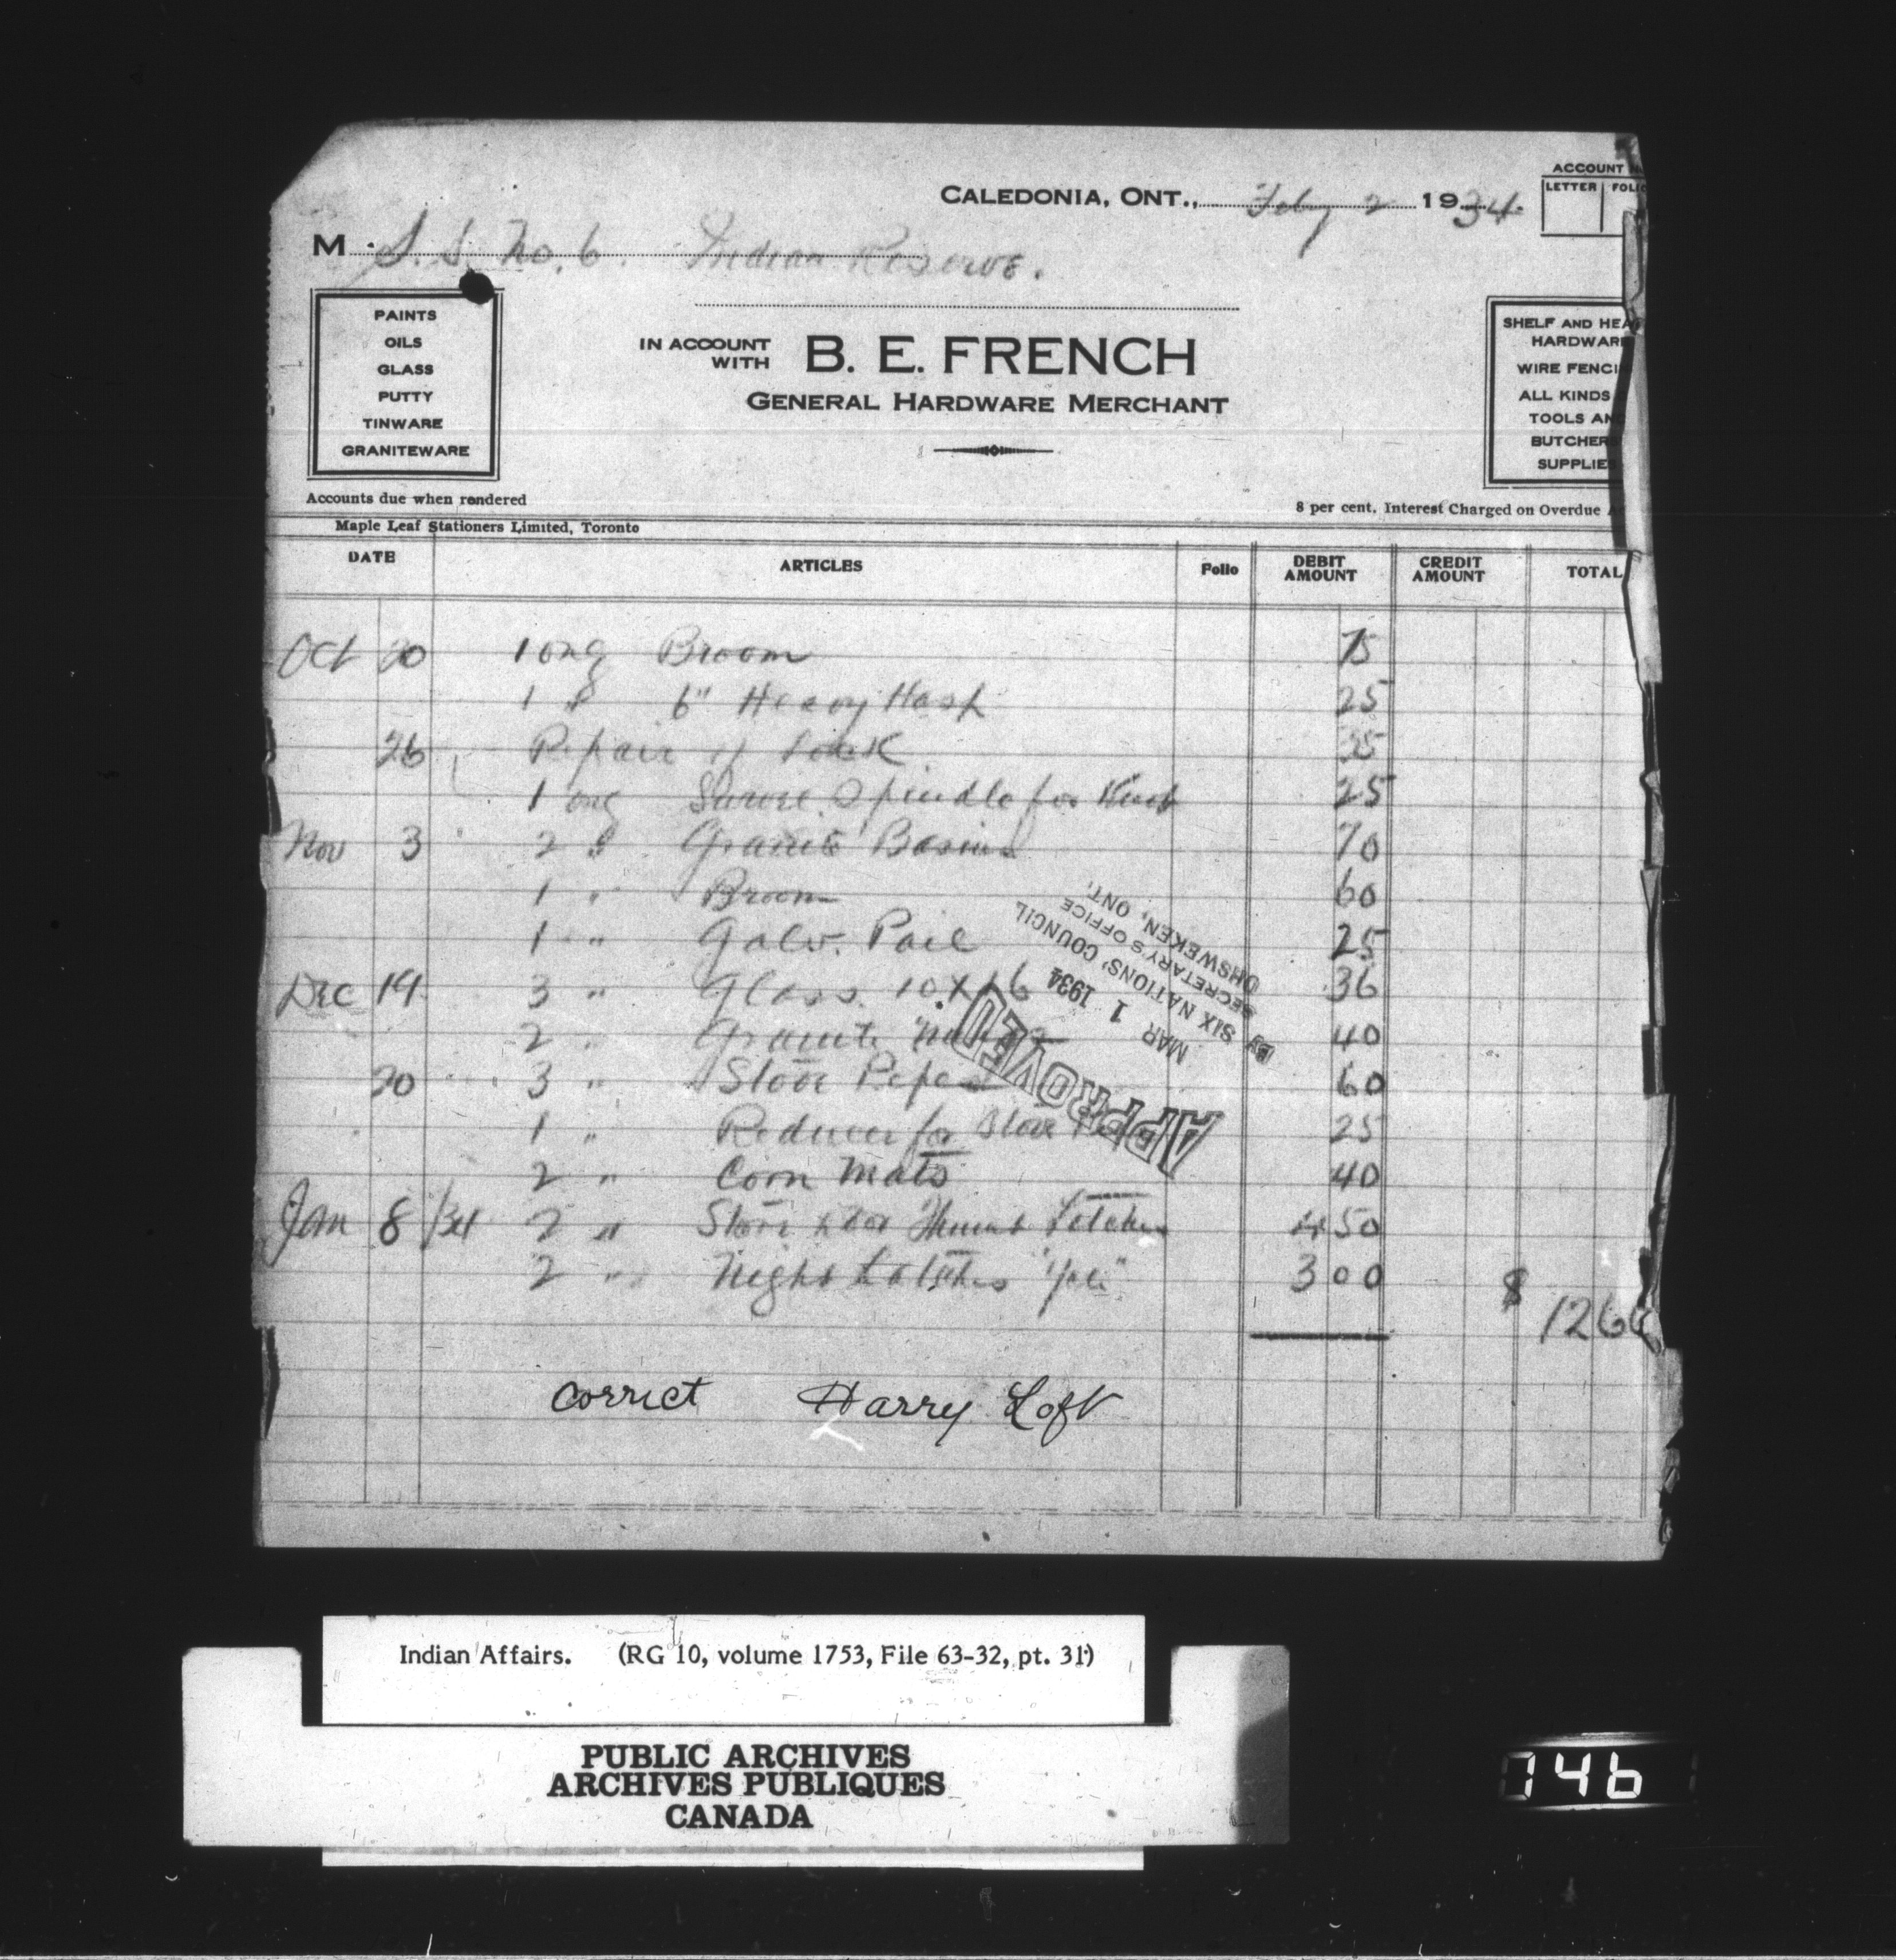 ACCOUNT N
LETTER FOLIO
CALEDONIA, ONT., Feby 2 1934.
M S. S. No. 6. Indian Reserve.
PAINTS
OILS
GLASS
PUTTY
TINWARE
GRANITEWARE
IN ACCOUNT WITH B. E. FRENCH
GENERAL HARDWARE MERCHANT
SHELF AND HEA
HARDWARE
WIRE FENCI
ALL KINDS
TOOLS AN
BUTCHER
SUPPLIE
Accounts due when rendered
8 per cent. Interest Charged on Overdue A
Maple Leaf Stationers Limited, Toronto
DATE ARTICLES Folio DEBIT AMOUNT CREDIT AMOUNT TOTAL
Oct 20 1 only Broom 75
1 " 6" Heavy Hasp 25
26 Repair Lock 35
1 only Spindle for Knob 25
Nov 3 2 " Granite Basins 70
1 " Broom 60
1 " Galv. Pail 25
Dec 19 3 " Glass 10 x 16 36
2 " Granite 40
20 3 " Stove Pipes 60
1 " Reducer for Stove 25
2 " Corn Mats 40
Jan 8/34 2 " Thumb Latches 4 50
2 " Night Latches "Yale" 3 00
$ 1266
APPROVED
MAR 1 1934
BY SIX NATIONS' COUNCIL
SECRETARY'S OFFICE
OHSWEKEN, ONT.
correct Harry Loft
Indian Affairs. (RG 10, volume 1753, File 63-32, pt. 31)
PUBLIC ARCHIVES
ARCHIVES PUBLIQUES
CANADA
746